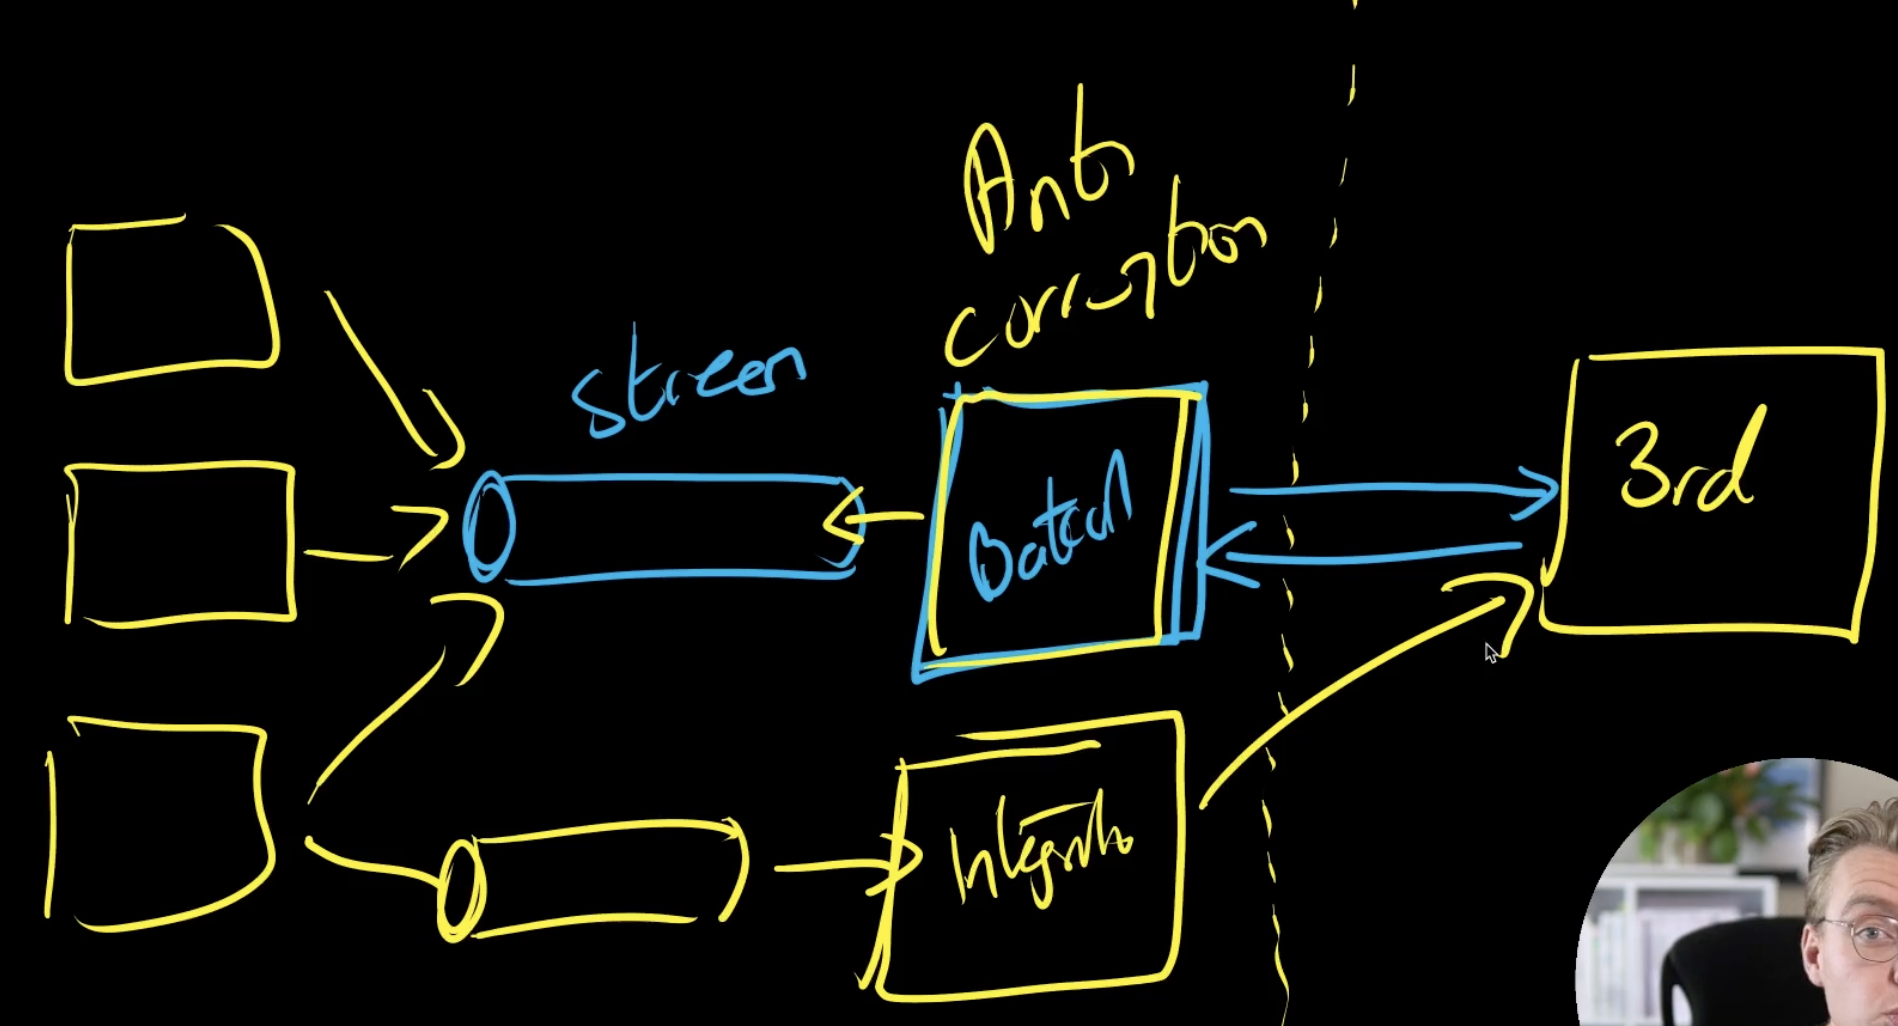 Anti
corruption
Stream
Batch
3rd
Integration